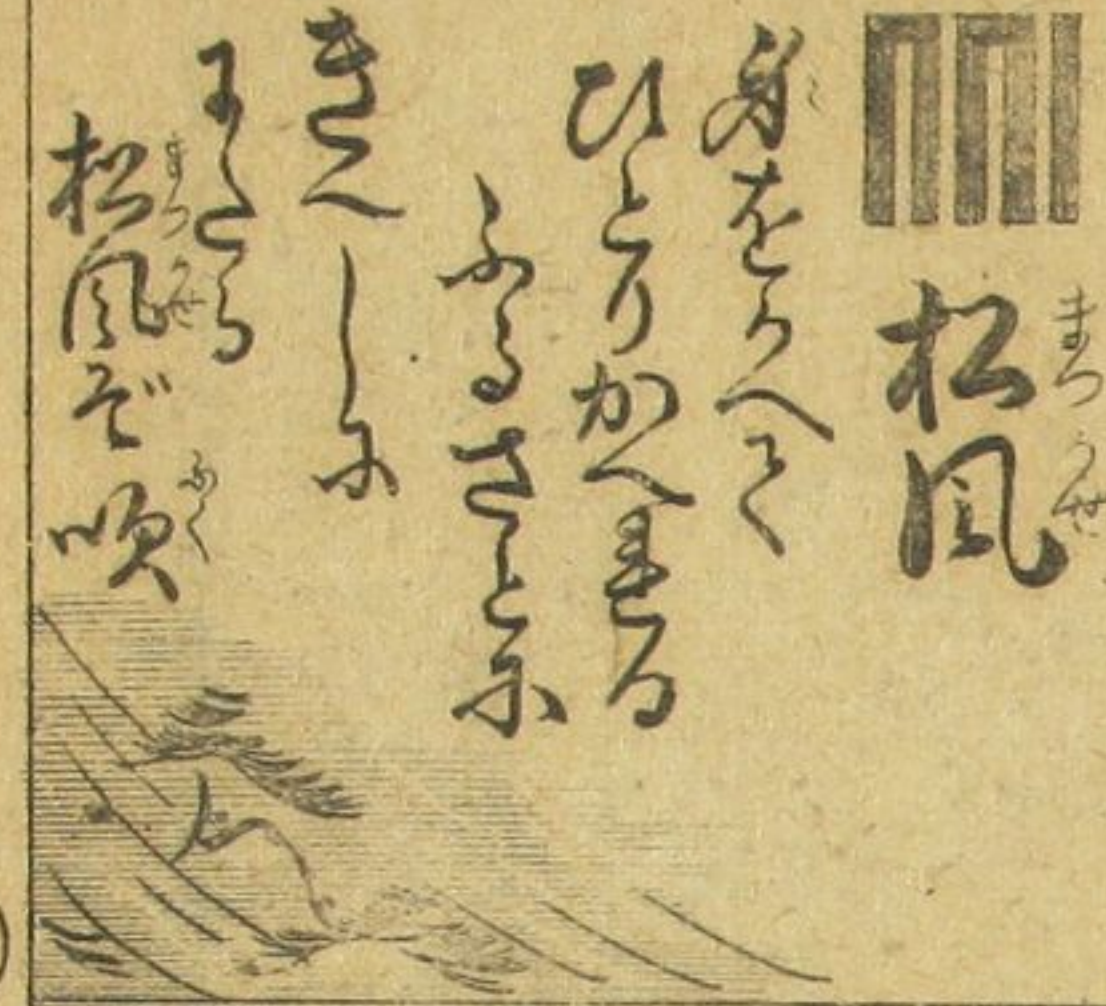 松風
まつかせ
身をかへて
み
ひとりかへれる
ふるさとに
きゝしに
にたる
松風ぞ吹
まつかせ
ふく